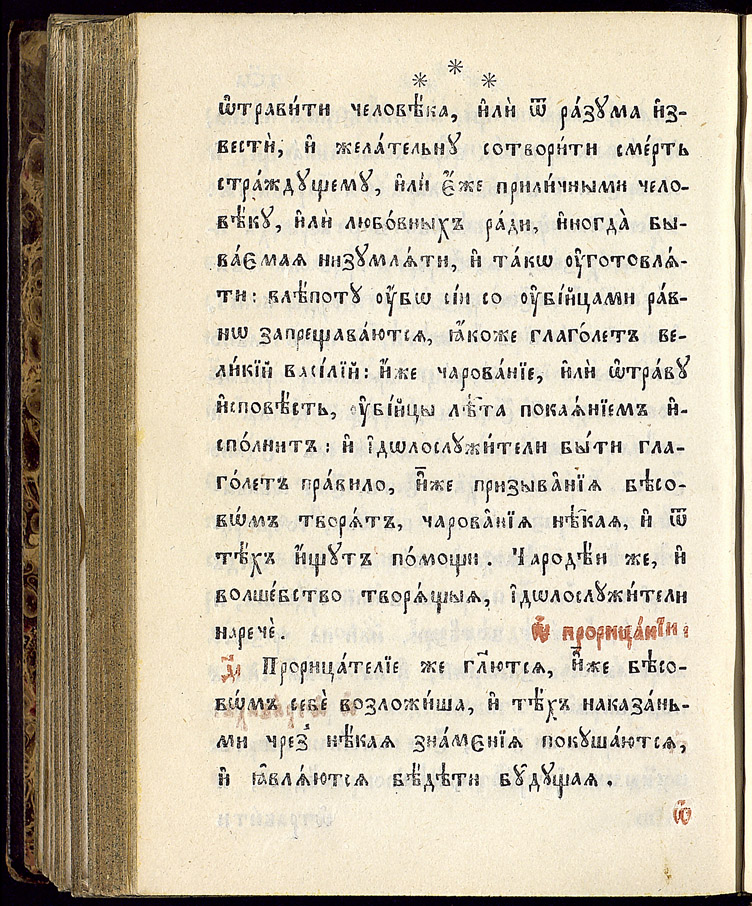 * * *
ѿтрави́ти человѣ́ка, и҆лѝ ѿ ра́зꙋма и҆з-
вестѝ, и҆ жела́тельнꙋ сотвори́ти сме́рть
стра́ждꙋщемꙋ, и҆лѝ є҆́же прили́чными чело-
вѣ́кꙋ, и҆лѝ любо́вныхъ ра́ди, и҆ногда̀ бы-
ва́ємая низꙋмлѧ́ти, и҆ та́кѡ ᲂу҆готовлѧ́-
ти: влѣ́потꙋ ᲂу҆́бѡ сі́и со ᲂу҆бі́йцами ра́в-
нѡ запрещава́ются, ꙗ҆́коже глаго́летъ ве-
ли́кїй васі́лїй: и҆́же чарова́нїе, и҆лѝ ѡ҆тра́вꙋ
и҆сповѣ́сть, ᲂу҆бі́йцы лѣ́та покаѧ́нїемъ и҆-
спо́лнитъ: и҆ і҆дѡлослꙋжи́тели бы́ти гла-
го́летъ пра́вило, и҆̀же призыва̂нїѧ бѣсо-
вѡ́мъ творѧ́тъ, чарова̂нїѧ нѣ̑кая, и҆ ѿ
тѣ́хъ и҆́щꙋтъ по́мощи. Чародѣ́и же, и҆
волше́бство творѧ́щыѧ, і҆дѡлослꙋжи́тели
наречѐ.
Ѽ прорица́нїи:
д҃ Прорица́телїе же гл҃ются, и҆̀же бѣсо-
вѡ́мъ себѐ возложи́ша, и҆ тѣ́хъ наказа́нь-
ми чрез̾ нѣ̑кая зна́мєнїѧ покꙋша́ются,
и҆ ꙗ҆влѧ́ются вѣ́дѣти бꙋ̑дꙋщая.
Ѽ